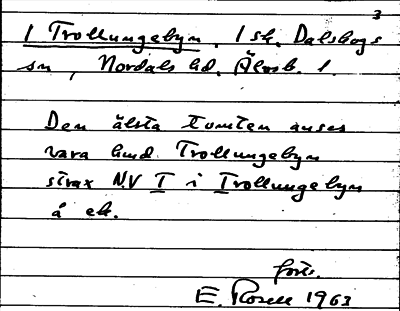 3
1 Trollungebyn. 1 sk. Dalskogs
sn, Nordals hd. Älvsb. l.
Den älsta tomten anses
vara kmd. Trollungebyn
strax NV T i Trollungebyn
å ek.
forts.
E. Rosell 1963